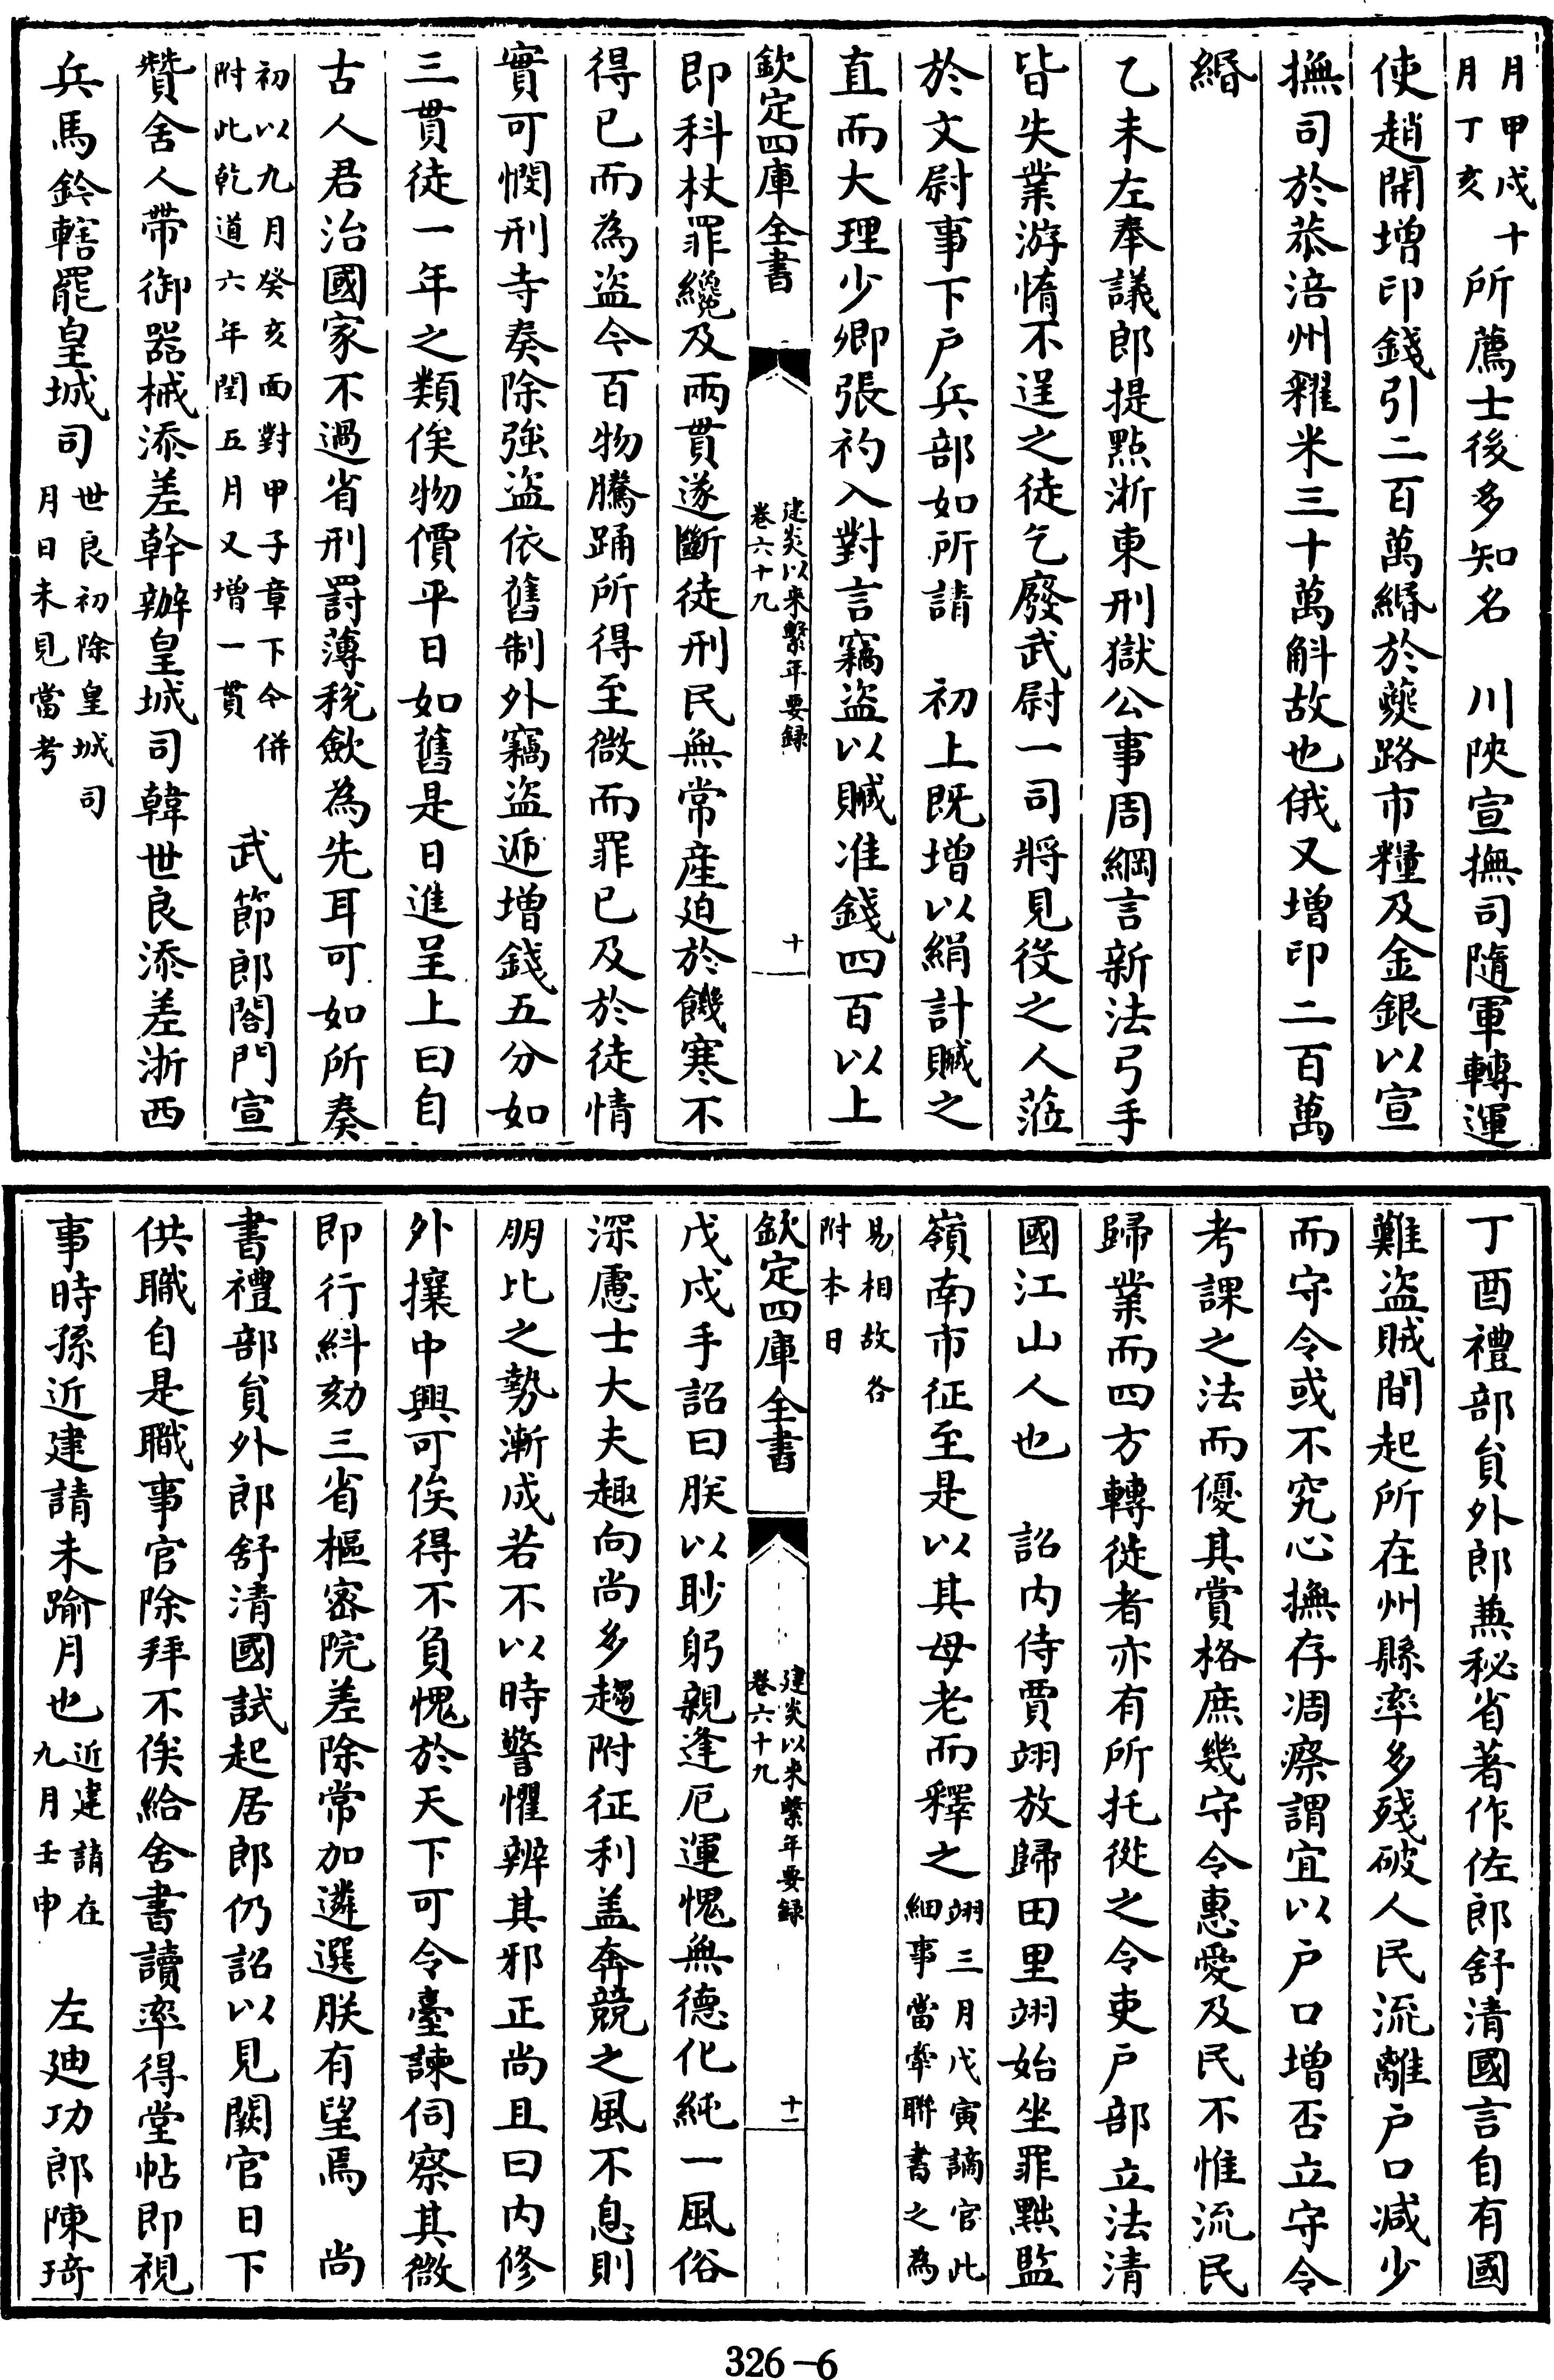 月甲戌十
月丁亥
所薦士後多知名　川陜宣撫司隨軍轉運
使趙開增印錢引二百萬緡於夔路市糧及金銀以宣
撫司於恭涪州糴米三十萬斛故也俄又增印二百萬
緡
乙未左奉議郎提點浙東刑獄公事周綱言新法弓手
皆失業游惰不逞之徒乞廢武尉一司將見役之人蒞
於文尉事下户兵部如所請　初上既增以絹計贓之
直而大理少卿張礿入對言竊盜以贓准錢四百以上
欽定四庫全書
建炎以來繫年要録
卷六十九
十
即科杖罪纔及兩貫遂斷徒刑民無常産廹於饑寒不
得已而為盜今百物騰踊所得至微而罪已及於徒情
實可憫刑寺奏除強盜依舊制外竊盜遞增錢五分如
三貫徒一年之類俟物價平日如舊是日進呈上曰自
古人君治國家不過省刑罰薄稅歛為先耳可如所奏
初以九月癸亥面對甲子章下今併
附此乾道六年閏五月又增一貫
武節郎閤門宣
贊舍人帶御器械添差幹辦皇城司韓世良添差浙西
兵馬鈐轄罷皇城司
世良初除皇城司
月日未見當考
丁酉禮部貟外郎兼秘省著作佐郎舒清國言自有國
難盜賊間起所在州縣率多殘破人民流離户口減少
而守令或不究心撫存凋瘵謂宜以户口增否立守令
考課之法而優其賞格庶幾守令惠愛及民不惟流民
歸業而四方轉徙者亦有所托從之令吏户部立法清
國江山人也　詔内侍賈翊放歸田里翊始坐罪黜監
嶺南市征至是以其母老而釋之
翊三月戊寅謫官此
細事當牽聯書之為
易相故各
附本日
欽定四庫全書
建炎以來繫年要録
卷六十九
十一
戊戌手詔曰朕以眇躬親逢厄運愧無德化純一風俗
深慮士大夫趣向尚多趨附征利盖奔競之風不息則
朋比之勢漸成若不以時警懼辨其邪正尚且曰内修
外攘中興可俟得不負愧於天下可令臺諫伺察其微
即行糾劾三省樞密院差除常加遴選朕有望焉　尚
書禮部貟外郎舒清國試起居郎仍詔以見闕官日下
供職自是職事官除拜不俟給舍書讀率得堂帖即視
事時孫近建請未踰月也
近建請在
九月壬申
左廸功郎陳琦
326-6